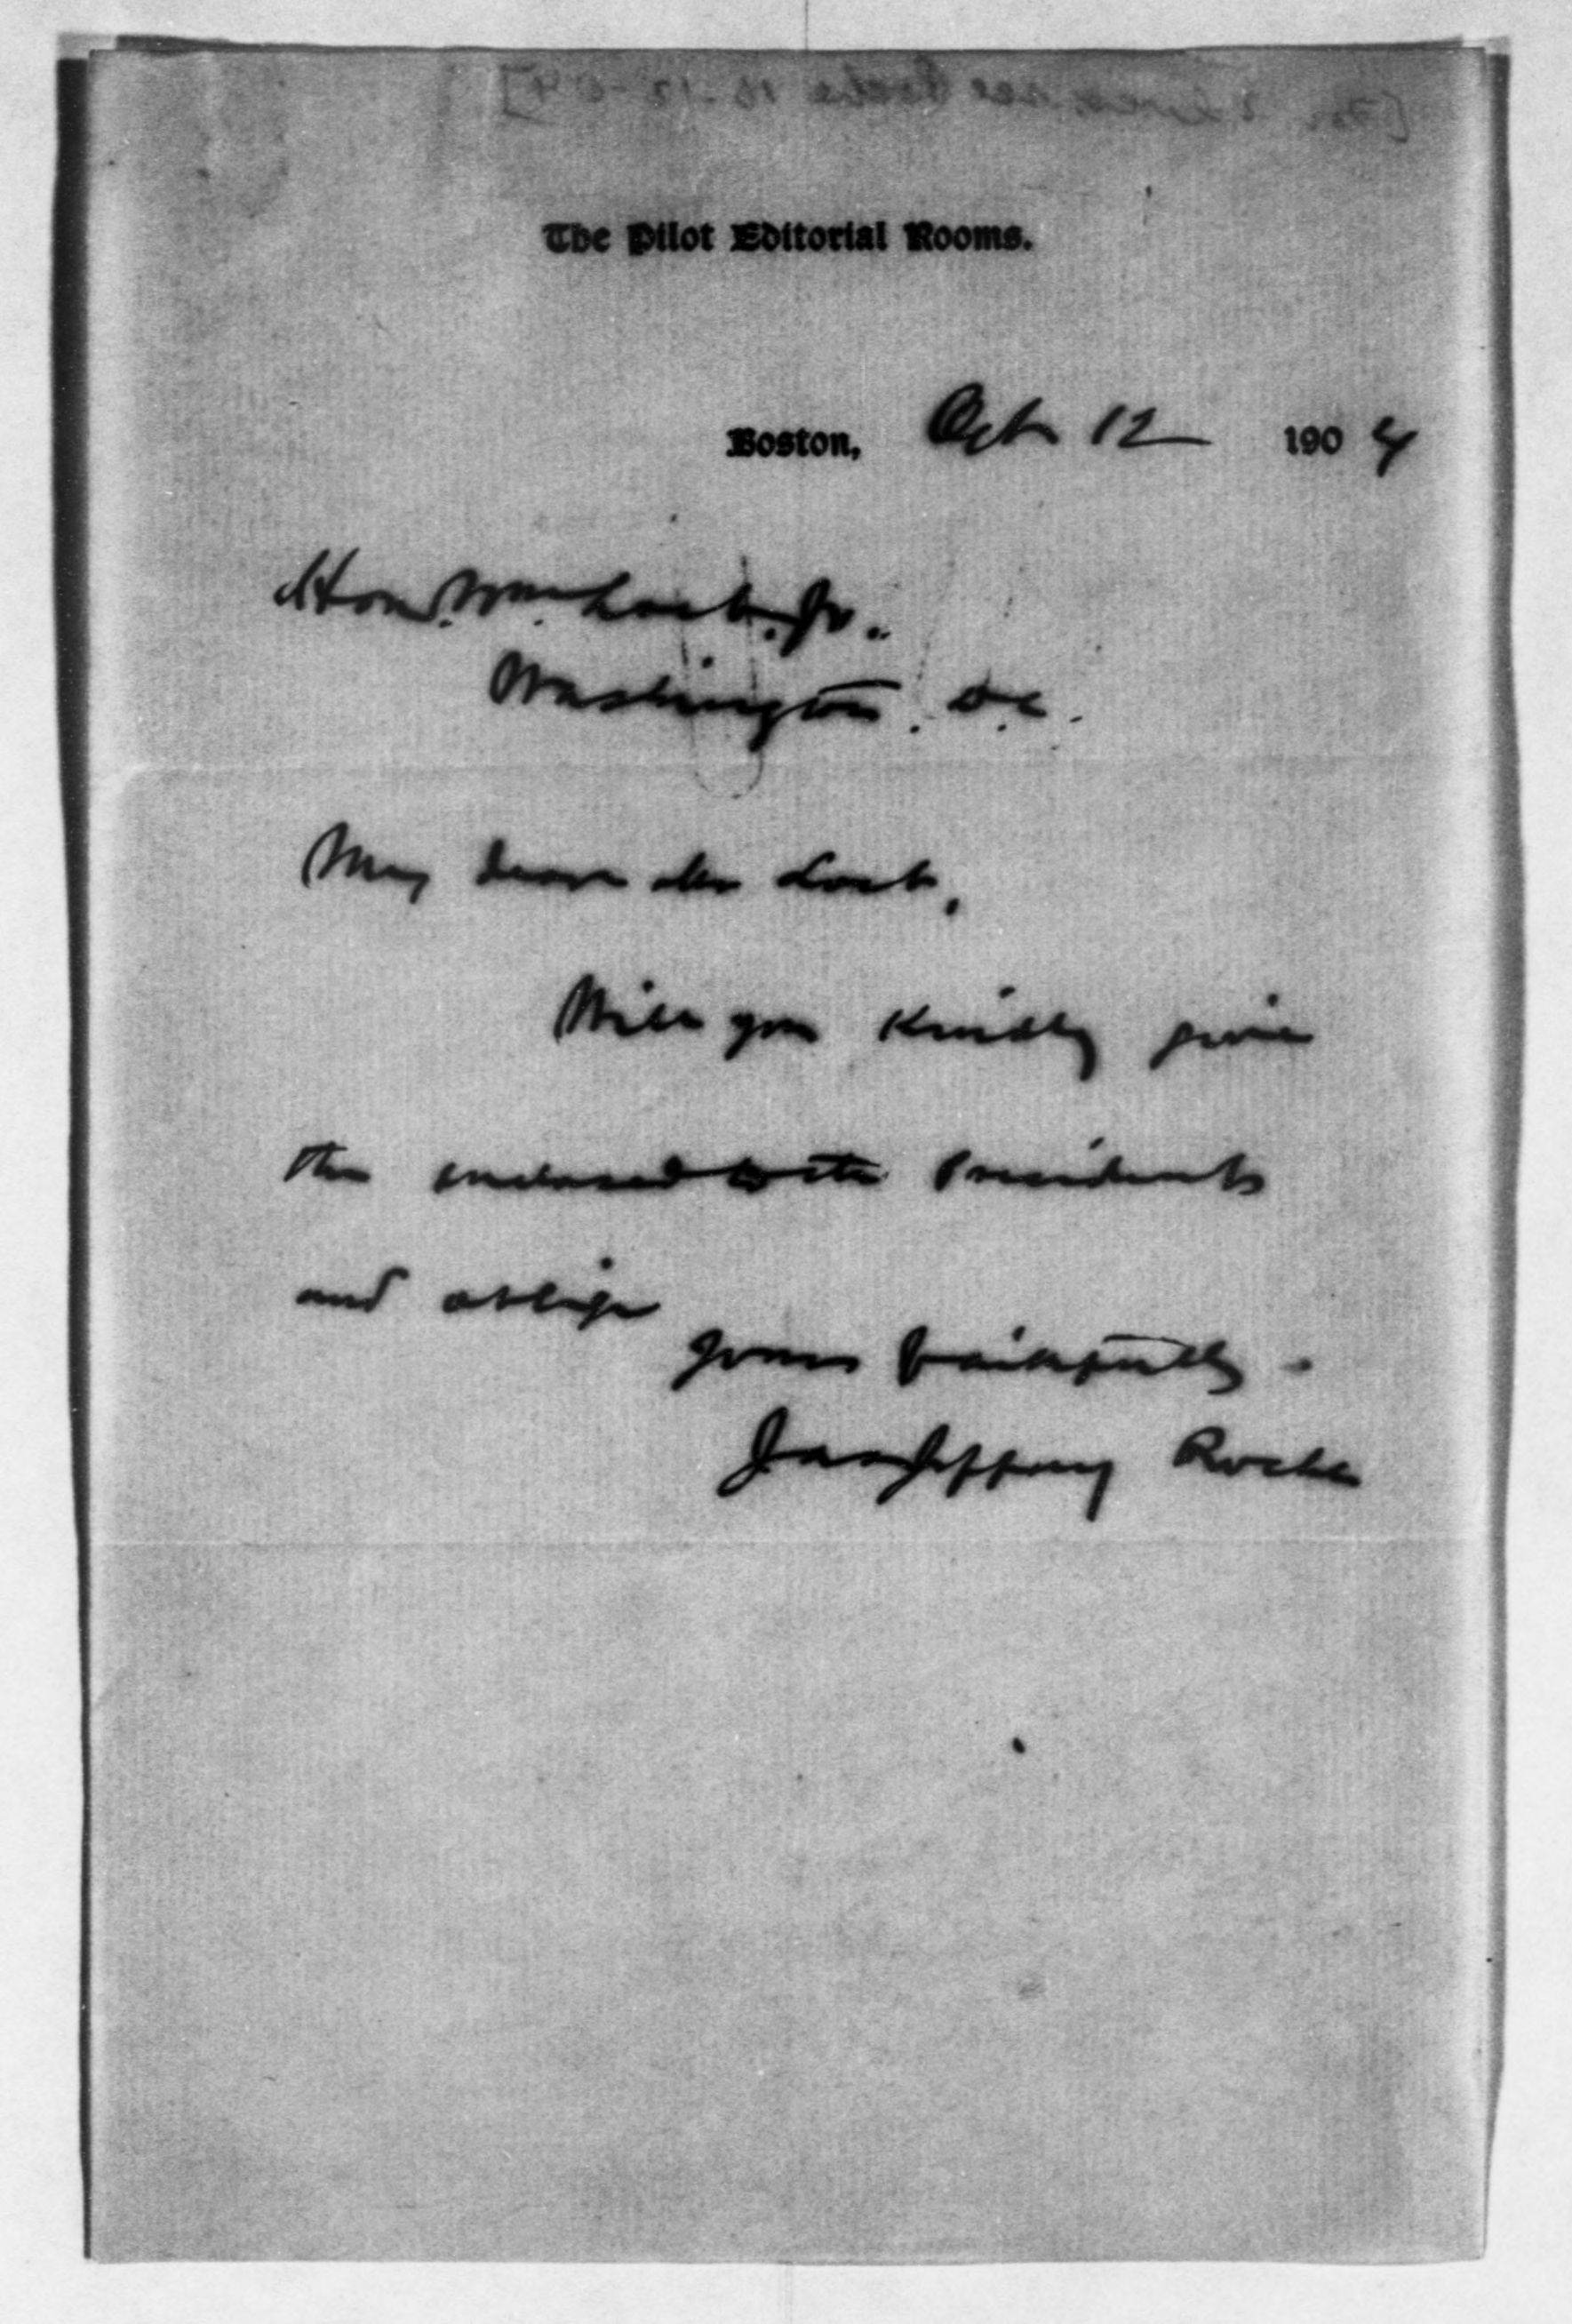 The Pilot Editorial Rooms.
Boston, Oct 12 1904
Hon. Wm. Loeb, Jr.
Washington, D.C.
My dear Mr Loeb,
Will you kindly give
the enclosed to the President
and oblige
yours faithfully.
Jas Jeffrey Roche